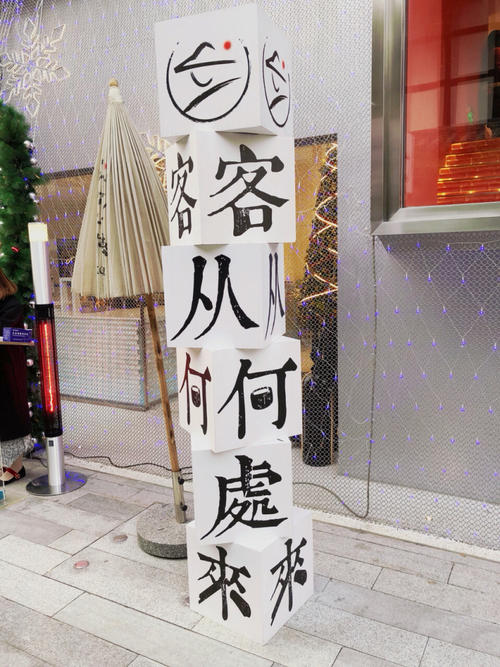 客 客
从 从
何 何
處
來 來